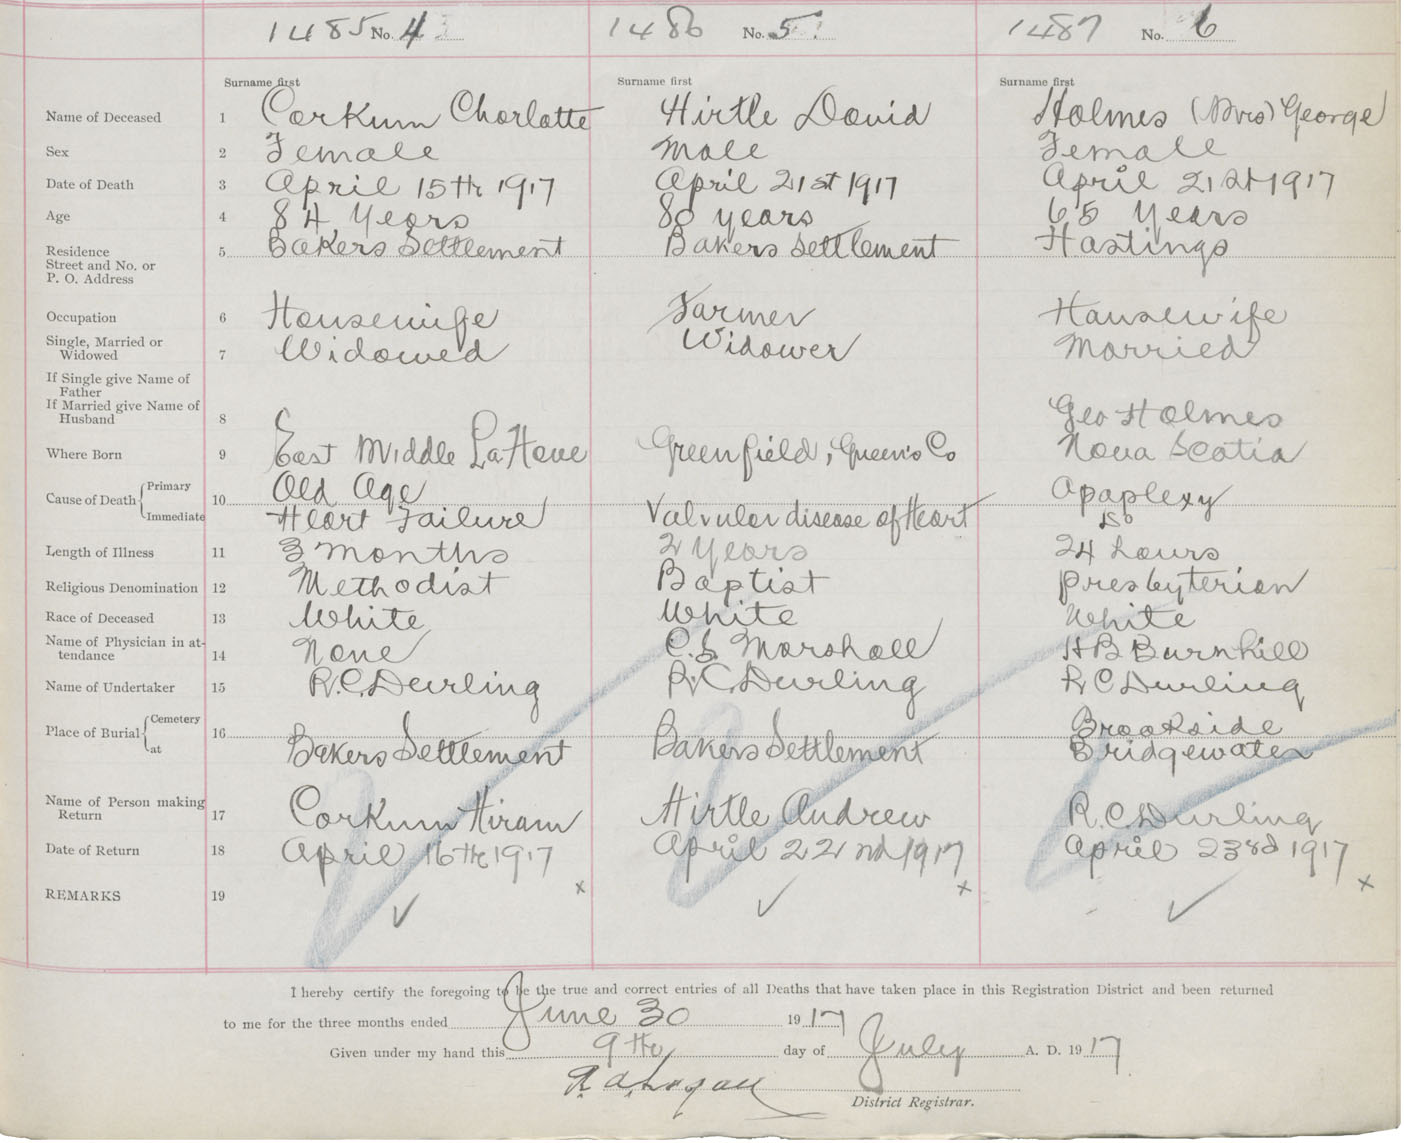 1485 No. 4 1486 No. 5 1487 No. 6
Surname first Surname first Surname first
Name of Deceased 1 Corkum Charlotte Hirtle David Holmes (Mrs) George
Sex 2 Female Male Female
Date of Death 3 April 15th 1917 April 21st 1917 April 21st 1917
Age 4 84 Years 80 years 65 Years
Residence
Street and No. or
P. O. Address 5 Bakers Settlement Bakers Settlement Hastings
Occupation 6 Housewife Farmer Housewife
Single, Married or
Widowed 7 Widowed Widower Married
If Single give Name of
Father
If Married give Name of
Husband 8 Geo Holmes
Where Born 9 East Middle LaHave Greenfield, Queen's Co Nova Scotia
Cause of Death Primary 10 Old Age Apaplexy
Immediate Heart Failure Valvular disease of Heart Do
Length of Illness 11 3 months 2 Years 24 hours
Religious Denomination 12 Methodist Baptist Presbyterian
Race of Deceased 13 White White White
Name of Physician in at-
tendance 14 None C. S. Marshall H B Burnhill
Name of Undertaker 15 R. C. Durling R. C. Durling R C Durling
Place of Burial Cemetery 16 Brookside
at Bakers Settlement Bakers Settlement Bridgewater
Name of Person making
Return 17 Corkum Hiram Hirtle Andrew R. C. Durling
Date of Return 18 April 16th 1917 April 22nd 1917 April 23rd 1917
x x x
REMARKS 19
I hereby certify the foregoing to be the true and correct entries of all Deaths that have taken place in this Registration District and been returned
to me for the three months ended June 30 1917
Given under my hand this 9th day of July A. D. 1917
District Registrar.